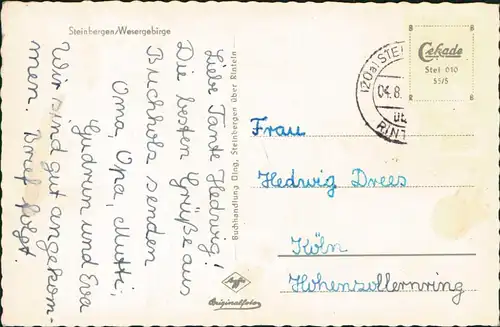 Steinbergen/Wesergebirge
Liebe Tante Hedwig!
Die besten Grüße aus
Buchholz senden
Oma, Opa, Mutti,
Gudrun und Eva
Wir sind gut angekom-
men. Brief folgt.
Buchhandlung Oing, Steinbergen über Rinteln
Agfa
Originalfoto
Cekade
Stei 010
55/5
(20a) STEI
04.8.
RINT
Frau
Hedwig Drees
Köln
Hohenzollernring